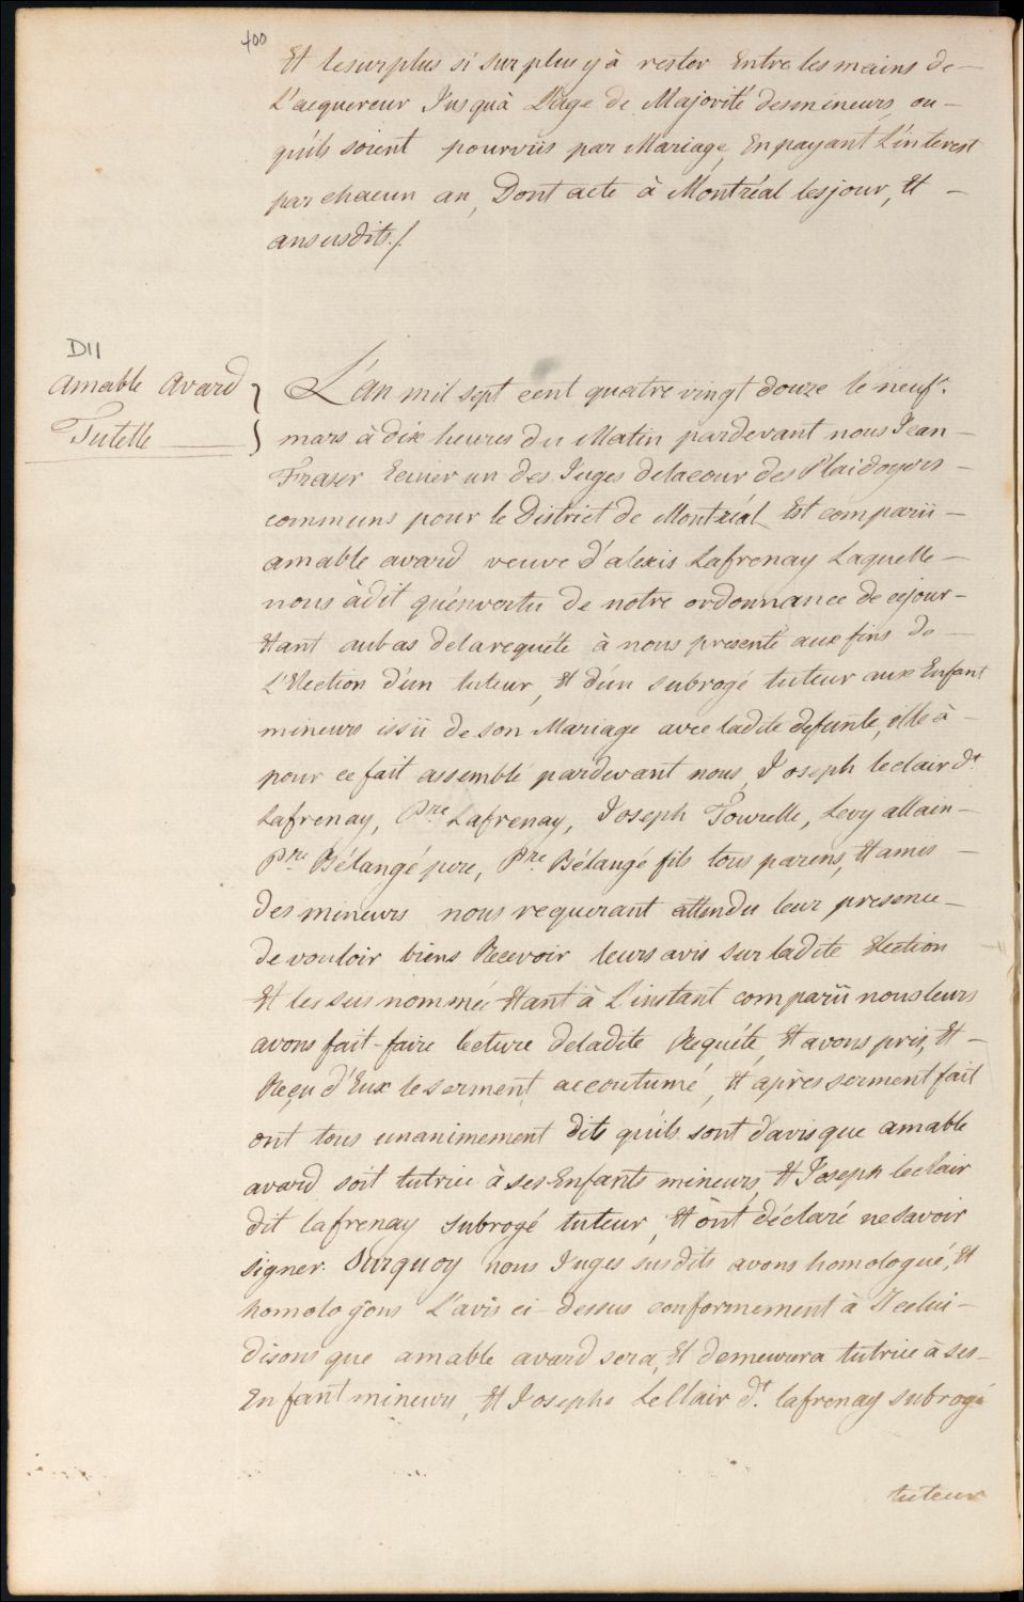 400
Et lesurplus si surplus y à rester Entre les mains de
L'acquereur Jusquà L'age de Majorité desmineurs, ou
qu'ils soient pourvüs par Mariage, En payant L'interest
par chacun an, Dont acte à Montréal lesjour, Et
ansusdits./.
D11
Amable Avard
Tutelle
L'An mil sept cent quatre vingt douze le neuf.
mars à dix heures du Matin pardevant nous Jean
Fraser Ecuier un des Juges delacour des Plaidoyers
communs pour le District de Montréal Est comparüi
amable avard veuve d'alexis Lafrenay Laquelle
nous àdit qu'envertu de notre ordonnance de cejour
Etant aubas delarequéte à nous presenté aux fins de
L'Election d'un tuteur, Et d'un subrogé tuteur aux Enfant
mineurs issü de son Mariage avec ladite defunte, elle à
pour ce fait assemblé pardevant nous, Joseph leclair dt.
Lafrenay, Pre Lafrenay, Joseph Tourelle, Levy allain
Pre Bélangé pere, Pre. Bélangé fils tous parens, Et amis
des mineurs nous requerant attendu leur presence
de vouloir biens Recevoir leurs avis sur ladite Election
Et les sus nommés Etant à L'instant comparüi nous leurs
avons fait-faire lecture deladite Requéte, Et avons pris, Et
Reçu d'Eux le serment accoutumé, Et après serment fait
ont tous unanimement dits qu'ils sont d'avis que amable
avard soit tutrice à ses Enfants mineurs, Et Joseph leclair
dit lafrenay subrogé tuteur, Et ont déclaré ne savoir
signer. Surquoy nous Juges susdits avons homologué, Et
homologons L'avis ci-dessus conformement à Icelui
disons que amable avard sera, Et demeurera tutrice à ses
Enfant mineurs, Et Josephe LeClair dt. lafrenay subrogé
tuteur